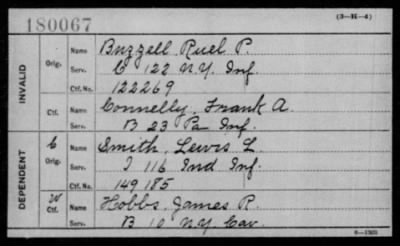 180067
(3-H-4)
INVALID
Orig.
Name Buzzell, Ruel P.
Serv. G 122 N.Y. Inf.
Ctf. No. 122269
Ctf.
Name Connelly, Frank A.
Serv. B 23 Pa Inf.
DEPENDENT
C
Orig.
Name Smith, Lewis L.
Serv. I 116 Ind Inf.
Ctf. No. 149185
W
Ctf.
Name Hobbs, James R.
Serv. B 10 N.Y. Cav.